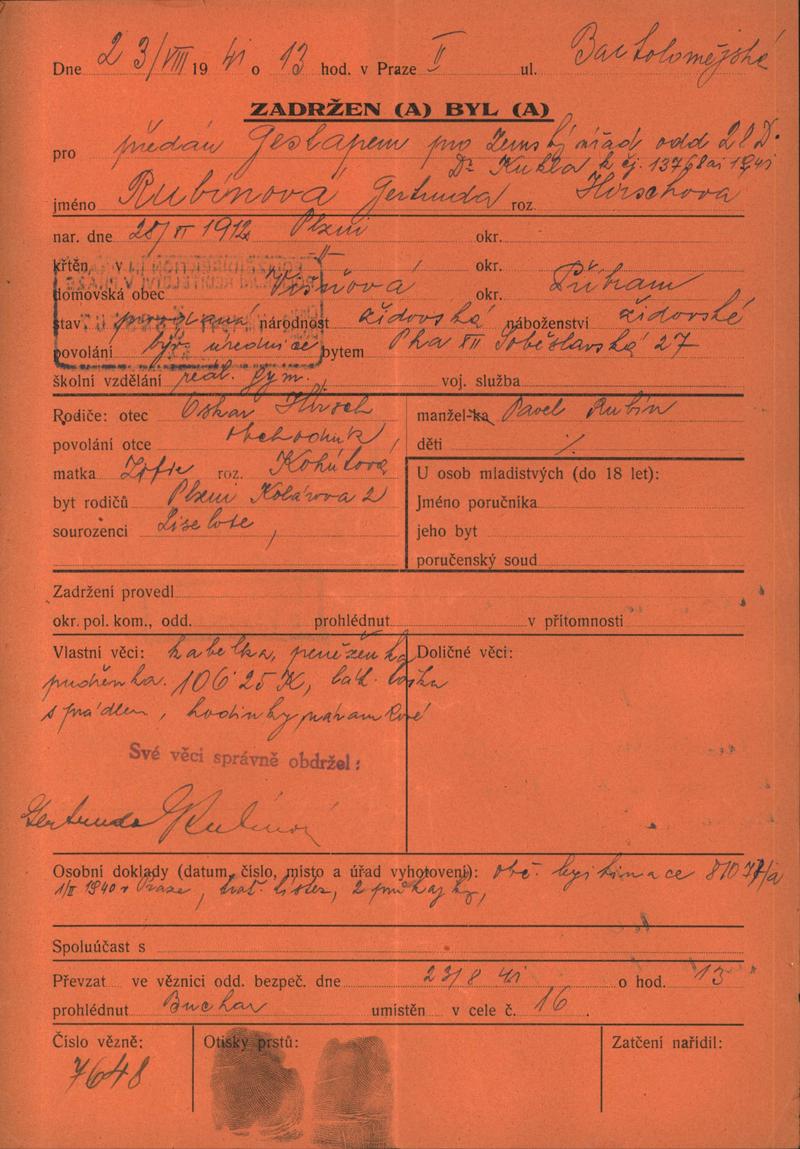 Dne 23/VIII 1941 o 13 hod. v Praze II ul. Bartolomějské
ZADRŽEN (A) BYL (A)
pro předán Gestapem pro Zemský úřad odd 28 D.
Dr Kukla k čj. 13768 ai 1941
jméno Rubínová Gertruda roz. Hirschova
nar. dne 28/VI 1912 Plzni okr.
křtěn, v -"- okr.
domovská obec Višňová okr. Příbram
stav, provdaná národnost židovská náboženství židovské
povolání býv. úřednice bytem Pha XII Soběslavská 27
školní vzdělání reál. gym. voj. služba
Rodiče: otec Oskar Hirsch
povolání otce obchodník
matka Žofie roz. Kohútová
byt rodičů Plzeň Kolárova 2
sourozenci Liselote,
manžel-ka Pavel Rubín
děti /.
U osob mladistvých (do 18 let):
Jméno poručníka
jeho byt
poručenský soud
Zadržení provedl
okr. pol. kom., odd. prohlédnut v přítomnosti
Vlastní věci: kabelka, peněženka
pudřenka. 106.25 K, lát. taška
s prádlem, hodinky náramkové
Doličné věci:
Své věci správně obdržel:
Gertruda Rubínová
Osobní doklady (datum, číslo, místo a úřad vyhotovení): obč. legitimace
1/II 1940 v Praze, 2 průkazky,
Spoluúčast s
Převzat ve věznici odd. bezpeč. dne 23/8 41 o hod. 13
prohlédnut Buchar umístěn v cele č. 16.
Číslo vězně:
7648
Otisky prstů:
Zatčení nařídil: